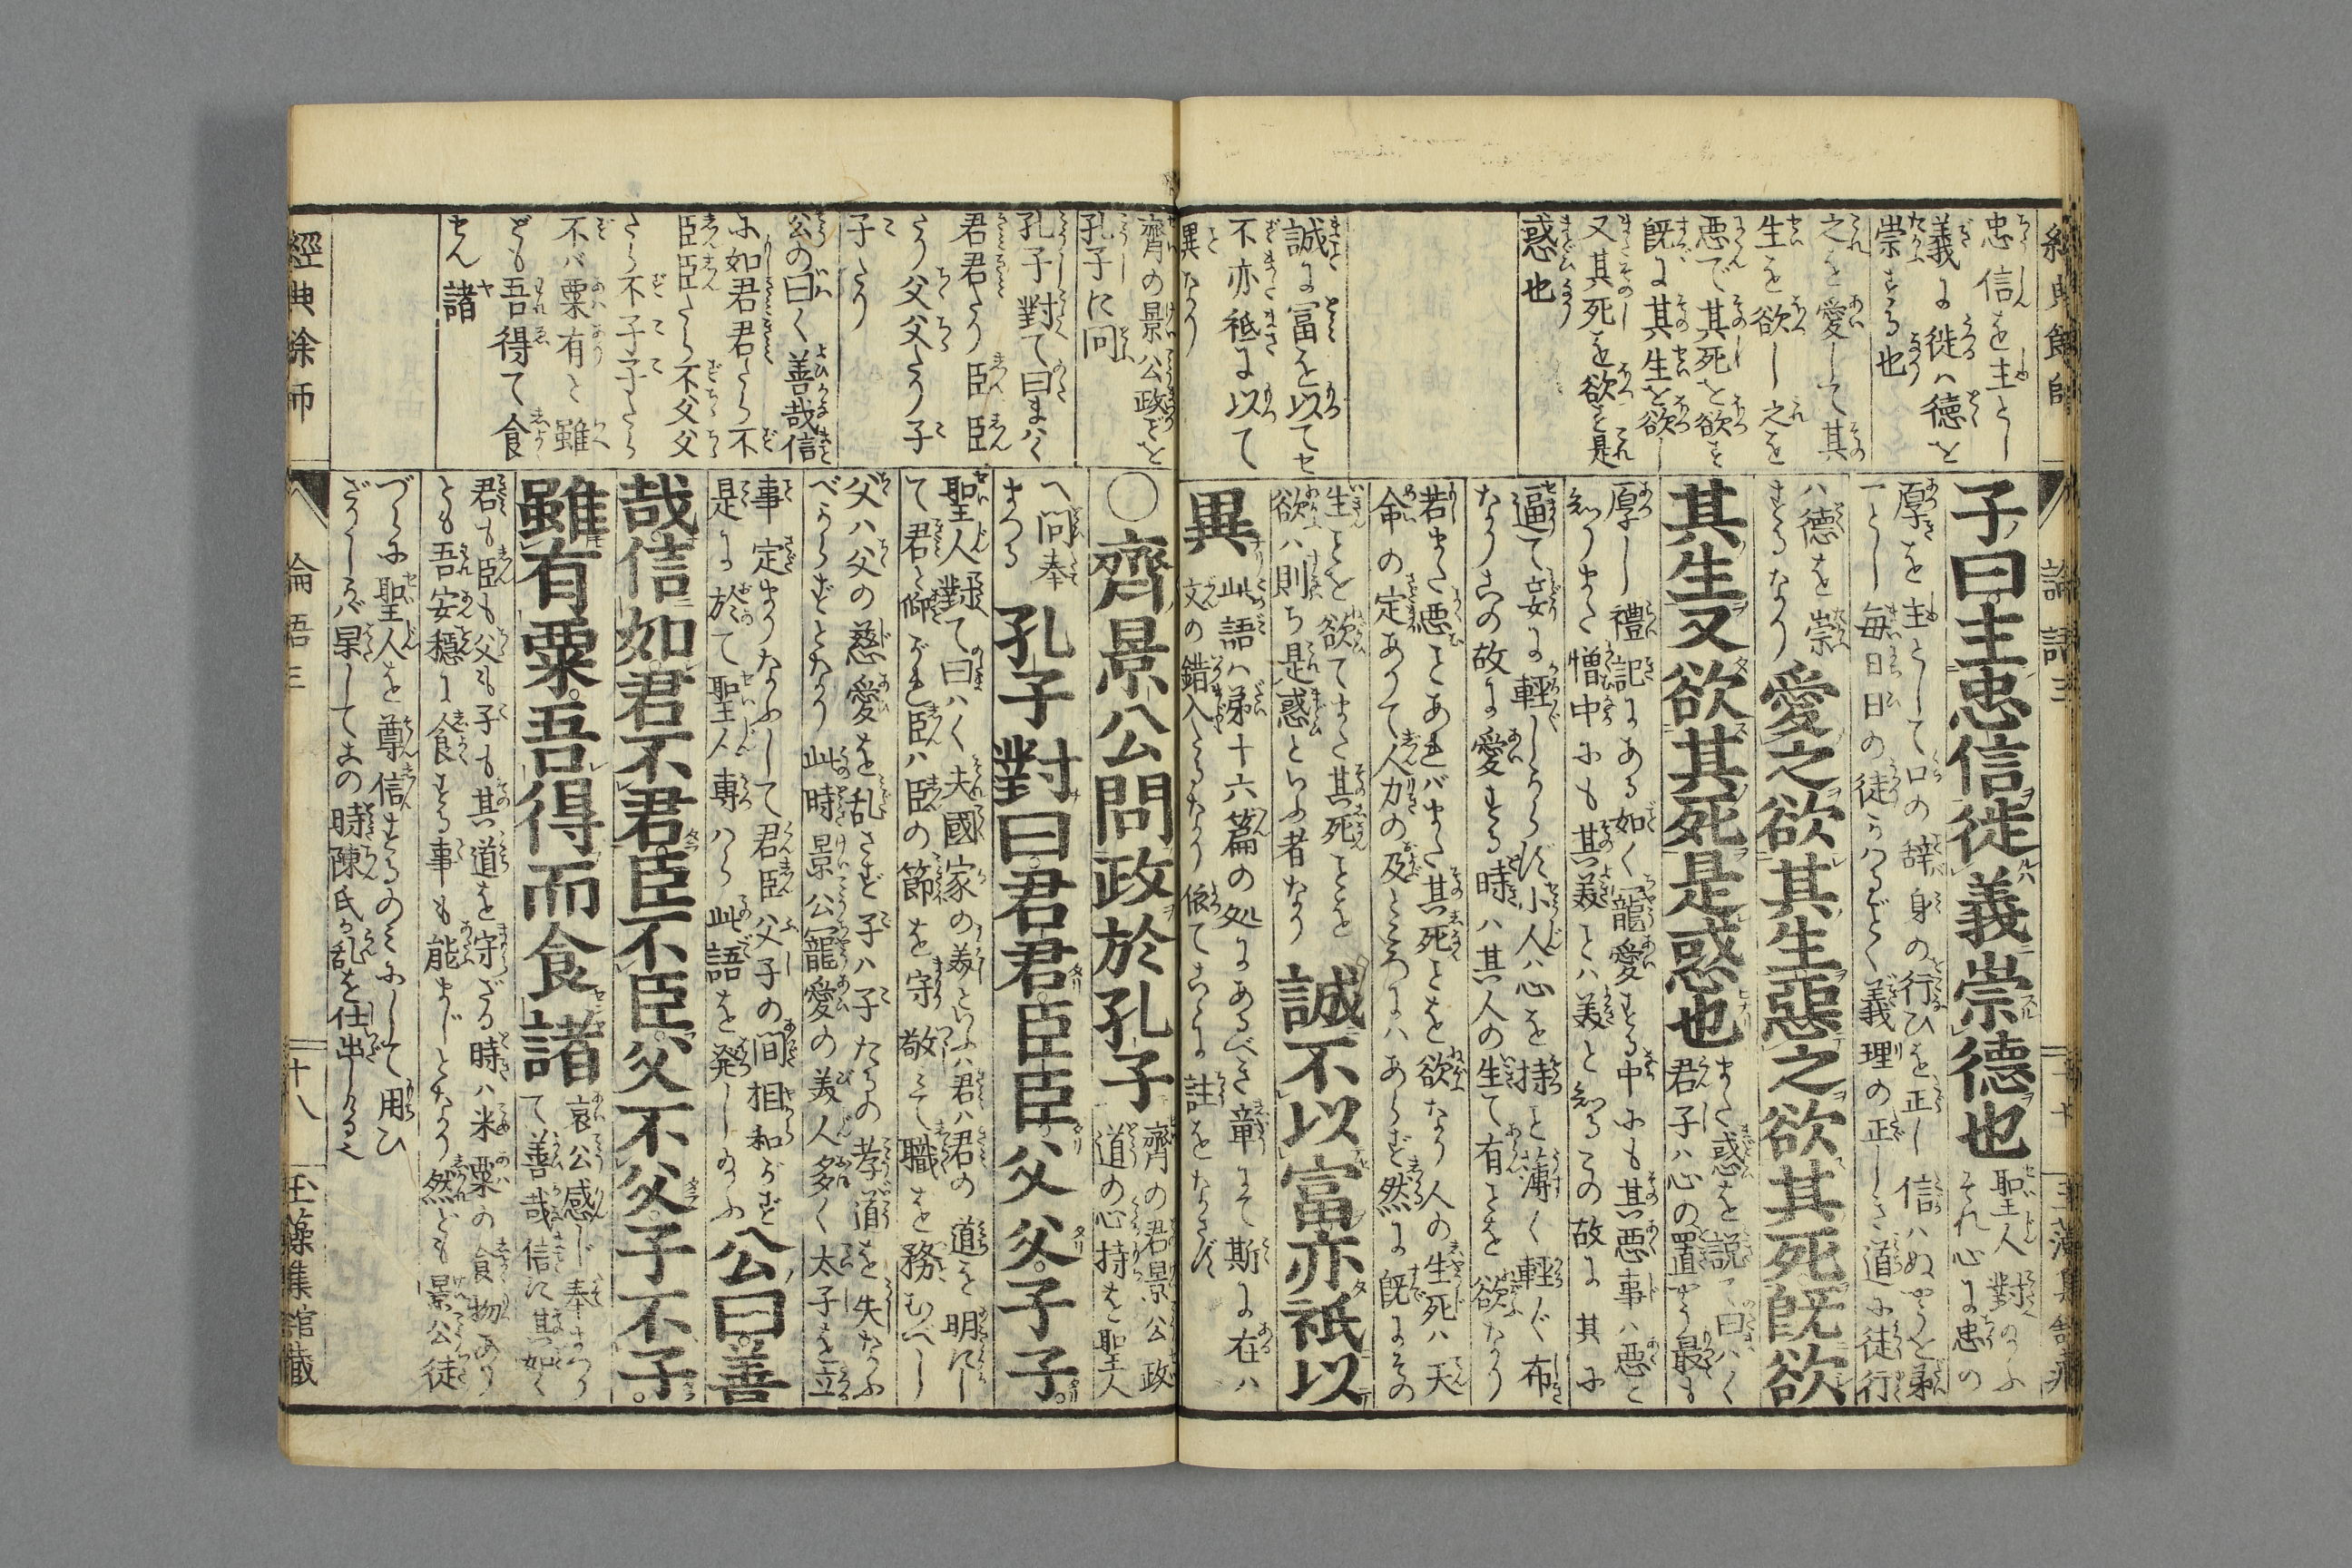 忠信を主とし
義に徙ハ德を
崇する也
之を愛して其
生を欲し之を
惡で其死を欲す
既に其生を欲し
又其死を欲す是
惑也
誠に冨を以てせ
不亦祗に以て
異なり
子曰主忠信徙義崇德也
聖人對のふ
それ心に忠の
厚を主として口の辞身の行ひを正し信ハぬやうを第
一とし毎日日の徒かハるどく義理の正しき道に徒行
ハ德を崇
するなり
愛之欲其生惡之欲其死既欲
其生又欲其死是惑也
また惑を説て曰ハく
君子ハ心の置やう最も
厚し禮記にある如く寵愛する中にも其悪事ハ悪と
知りまた憎中にも其美とハ美と知るこの故に其に
逼て妄に輕しからず小人ハ心を持と薄く輕ぐ布
なりこの故に愛する時ハ其人の生て有とを欲ふなり
若また悪とあれバまた其死とを欲なり人の生死ハ天
命の定ありて人力の及ところにハあらず然に既にその
生とを欲てまた其死とを
欲ハ則ち是惑といふ者なり
誠不以富亦祗以
異
此語ハ第十六篇の処にあるべき章にて斯に在ハ
文の錯入たるなり依てこゝに註をなさず
齊の景公政を
孔子に問
孔子對て曰まハく
君君たり臣臣
たり父父たり子
子たり
公の曰く善哉信
に如君君たら不
臣臣たら不父父
たら不子子たら
不バ粟有と雖
ども吾得て食
せん諸
○齊景公問政於孔子
齊の君景公政
道の心持を聖人
へ問奉
まつる
孔子對曰君君臣臣父父子子。
聖人對て曰ハく夫國家の美といふハ君ハ君の道を明にし
て君と仰がれ臣ハ臣の節を守り敬て職を務むべし
父ハ父の慈愛を乱さず子ハ子たるの孝道を失なふ
べからずとなり此時景公寵愛の美人多く太子を立
事定まりなふして君臣父子の間相和がず
是に於て聖人專ハら此語を発しのふ
公曰善
哉信如君不君臣不臣父不父子不子。
雖有粟吾得而食諸
哀公感じ奉まつり
て善哉信に其如く
君も臣も父も子も其道を守ざる時ハ米粟の食物あり
とも吾安穏に食する事も能まじとなり然ども景公徒
づらに聖人を尊信するのミにして用ひ
ざりしかバ果してその時陳氏が乱を仕出しける也
經典余師
論語三
十八
玉藻集舘藏